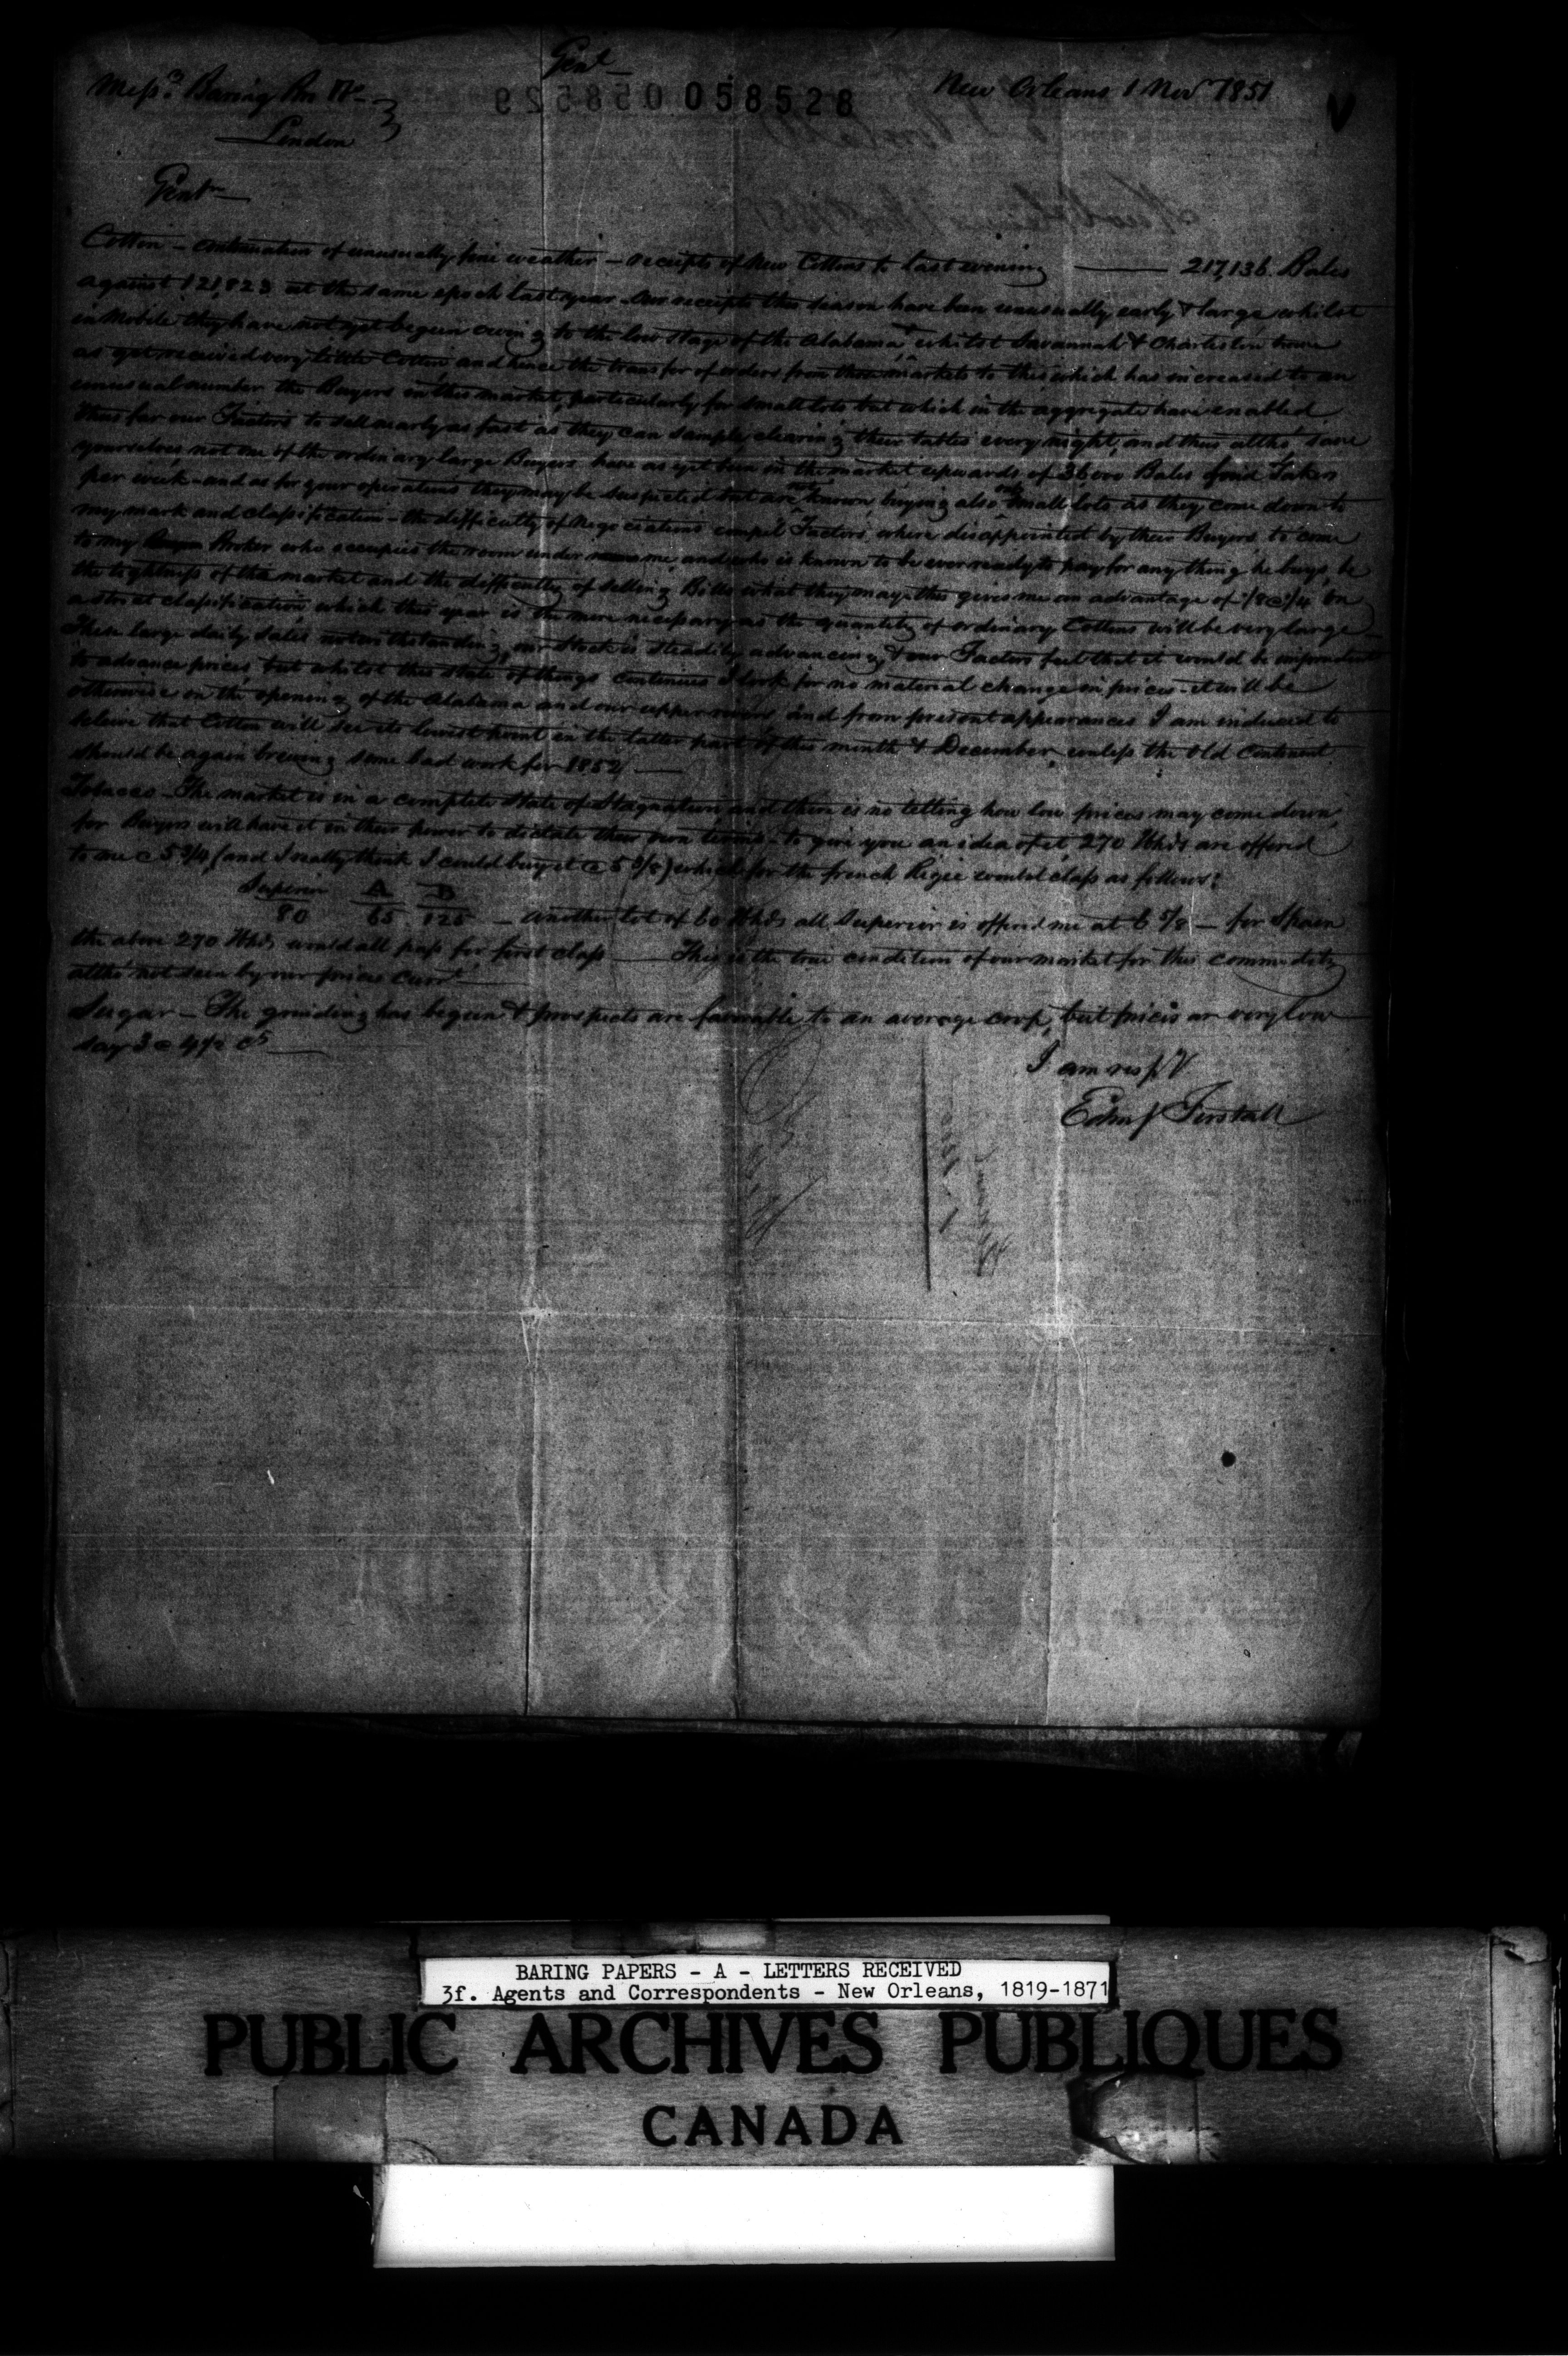 Gent
Mess.rs Baring Bro &Co
058529 058528
New Orleans 1 Nov 1851
London
Gentn
Cotton – continuation of unusually fine weather – receipts of New Cottons to last evening —— 217,136 Bales
against 121,823 at the same epoch last year. Our receipts this season have been unusually early & large, whilst
in Mobile they have not yet begun owing to the low stage of the Alabama & whilst Savannah & Charleston have
as yet received very little Cotton and hence the transfer of orders from those markets to this which has increased to an
unusual number the Buyers in this market, particularly for small lots but which in the aggregate have enabled
thus far our Factors to sell nearly as fast as they can sample, clearing their tables every night, and thus altho' save
yourselves, not one of the ordinary large Buyers have as yet been in the market upwards of 36000 Bales find Takers
per week – and as for your operations they may be suspected but are not known, buying also only small lots as they come down to
my mark and classification – the difficulty of Negociations compel Factors, where disappointed by their Buyers to come
to my Broker who occupies the room under me and who is known to be ever ready to pay for any thing he buys, be
the tightness of the market and the difficulty of selling Bills what they may – this gives me an advantage of 1/8 @ 1/4 on
a strict classification, which this year is the more necessary as the quantity of ordinary Cottons will be very large –
These large daily sales notwithstanding, our Stock is steadily advancing & our Factors feel that it would be imprudent
to advance prices, but whilst this state of things continues I look for no material change in prices – it will be
otherwise on the opening of the Alabama and our upper rivers, and from present appearances I am induced to
beleive that Cotton will see its lowest point in the latter part of this month & December, unless the Old Continent
should be again brewing some bad work for 1852 —
Tobacco – The market is in a complete state of Stagnation, and there is no telling how low prices may come down,
for Buyers will have it in their power to dictate their own terms – to give you an idea of it, 270 Hhds are offered
to me @ 5 3/4 (and I really think I could buy it @ 5 5/8) which for the french Regie would class as follows:
Superior A B
80 65 125 – another lot of 60 Hhds all Superior is offered me at 6 5/8 – for Spain
the above 270 Hhds would all pass for first class —— This is the true condition of our market for this commodity
altho' not seen by our prices Currt —
Sugar – The grinding has begun & prospects are favorable to an average crop, but prices are very low
say 3 @ 4 1/2 cs —
I am respy
Edm J Forstall
BARING PAPERS - A - LETTERS RECEIVED
3f. Agents and Correspondents - New Orleans, 1819-1871
PUBLIC ARCHIVES PUBLIQUES
CANADA